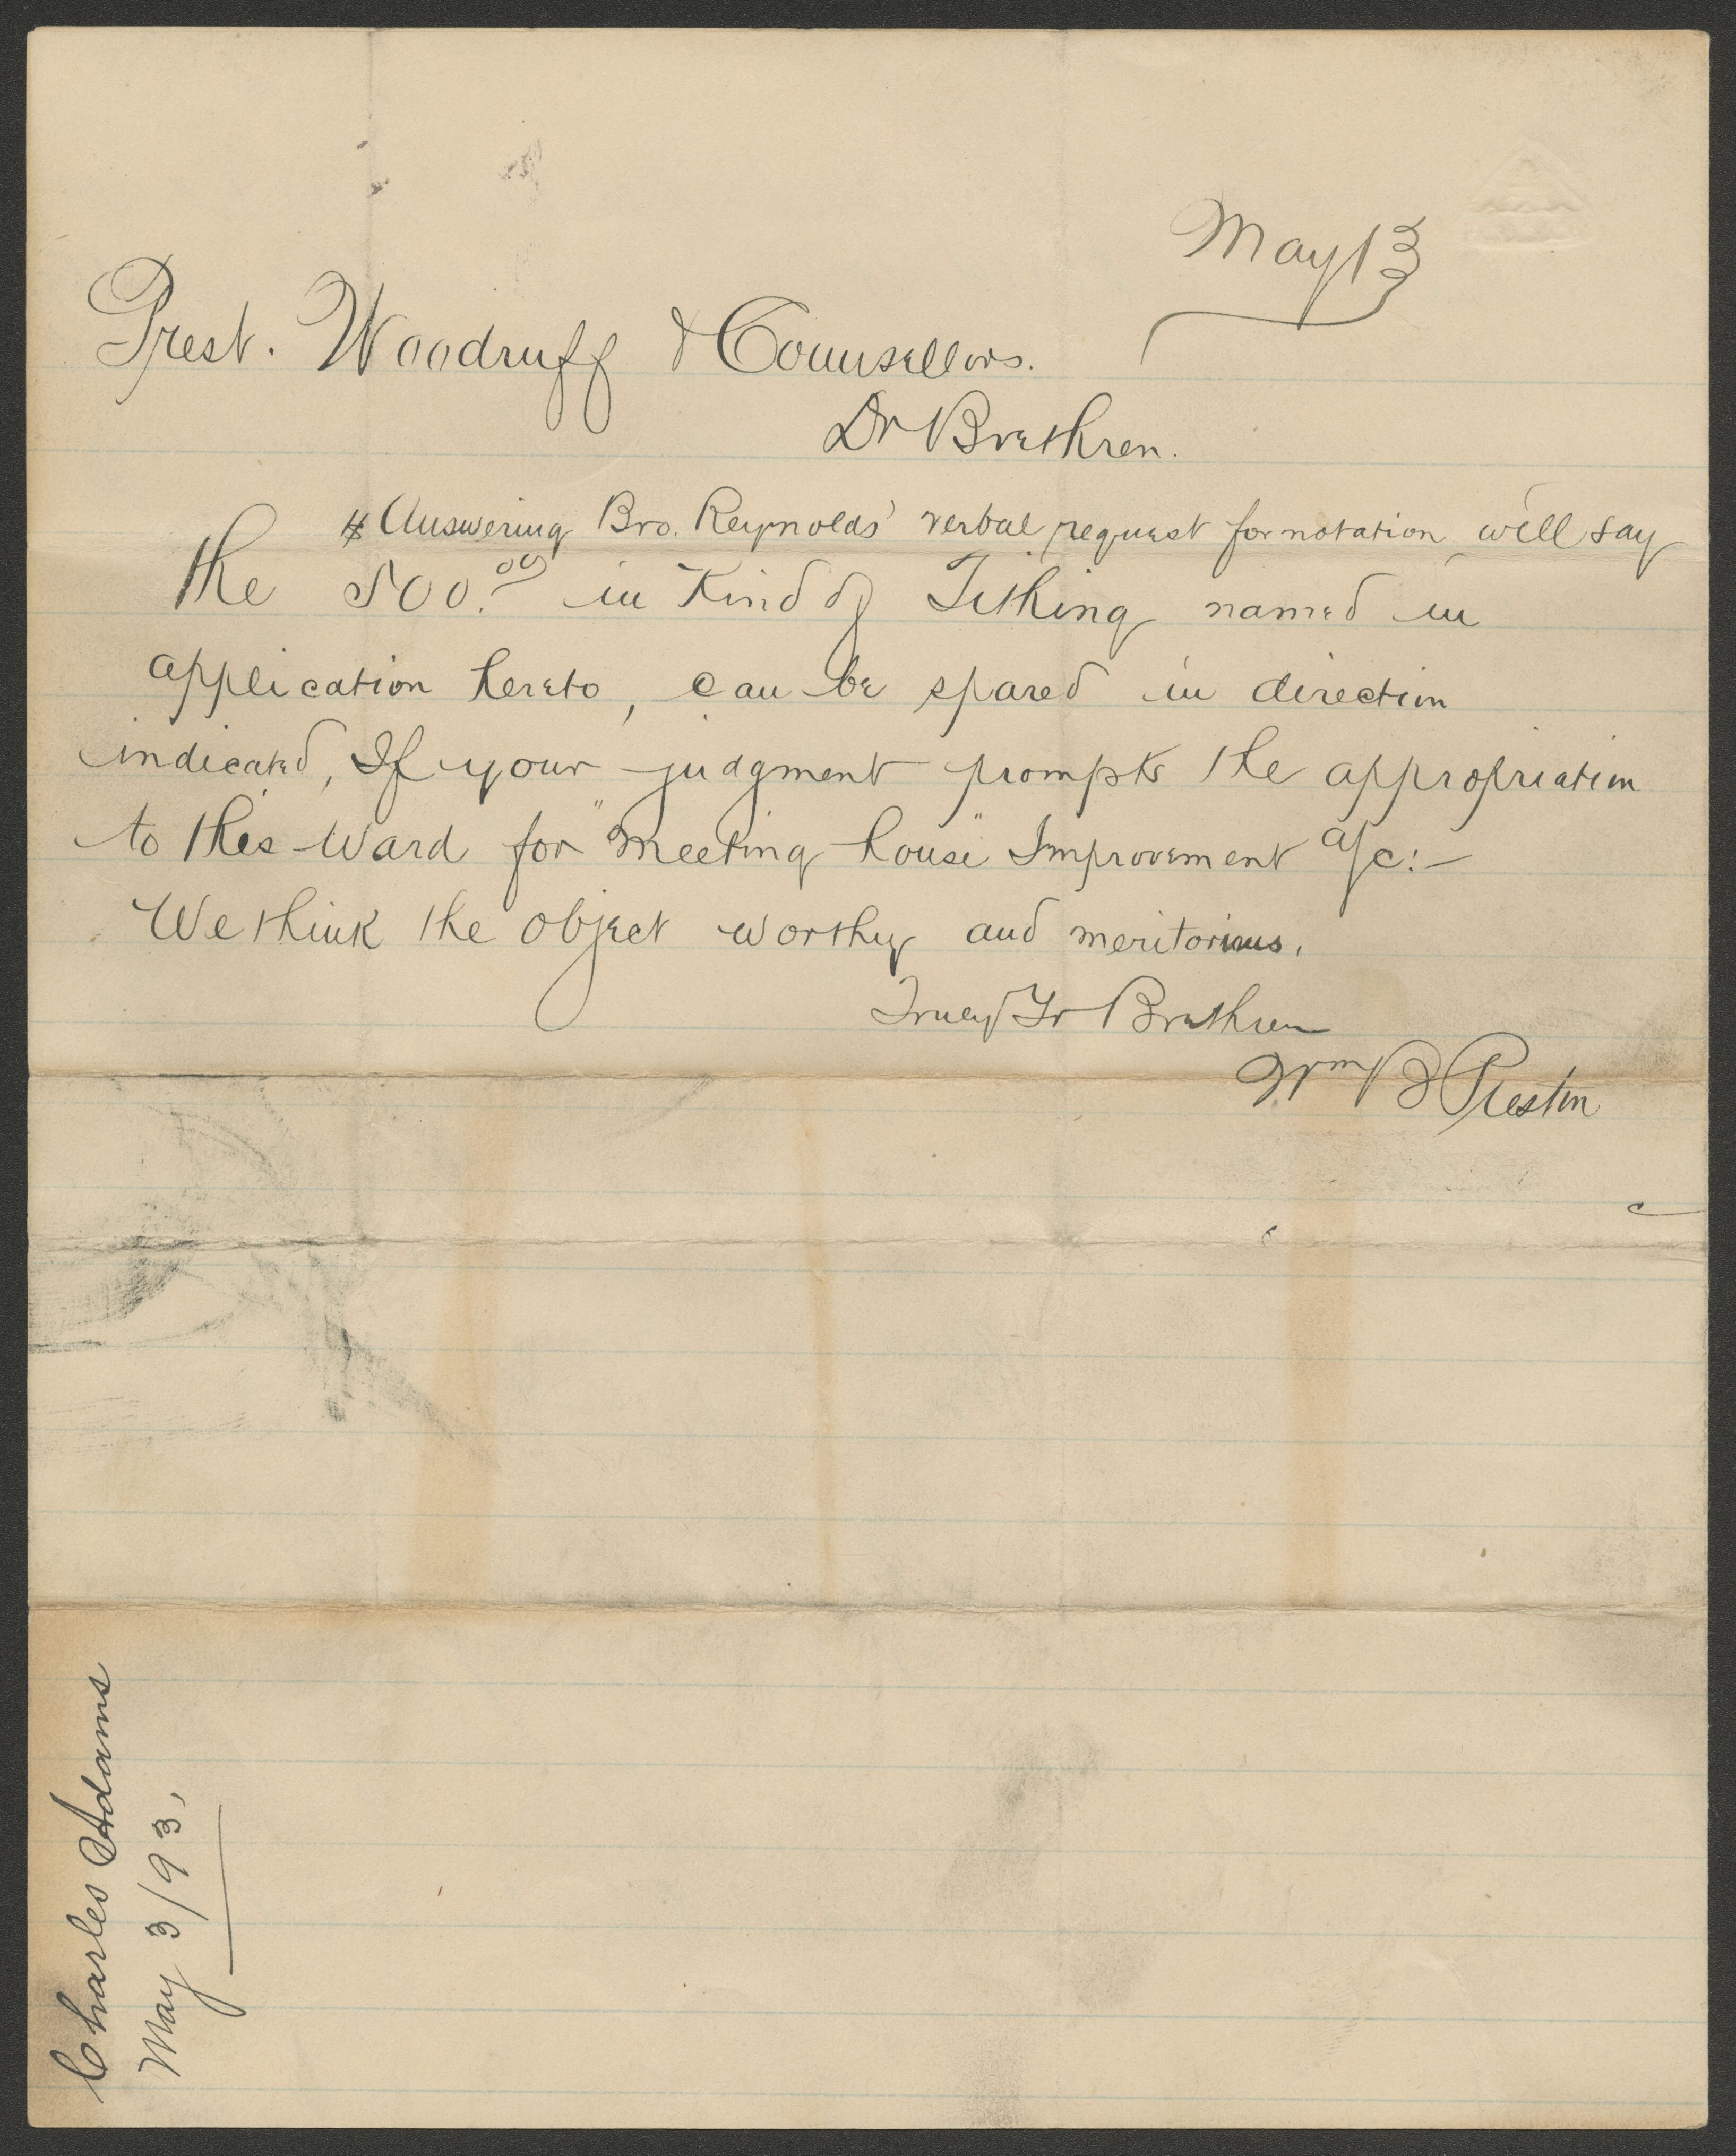 May 13
Prest. Woodruff & Counsellors.
Dr Brethren.
Answering Bro. Reynolds' verbal request for notation, will say
the 500.00 in Kind of Tithing named in
application hereto, can be spared in direction
indicated, If your judgment prompts the appropriation
to this Ward for "meeting house" Improvement a/c:—
We think the object worthy and meritorious.
Truly Yr Brethren
Wm B Preston
Charles Adams
May 3/93,